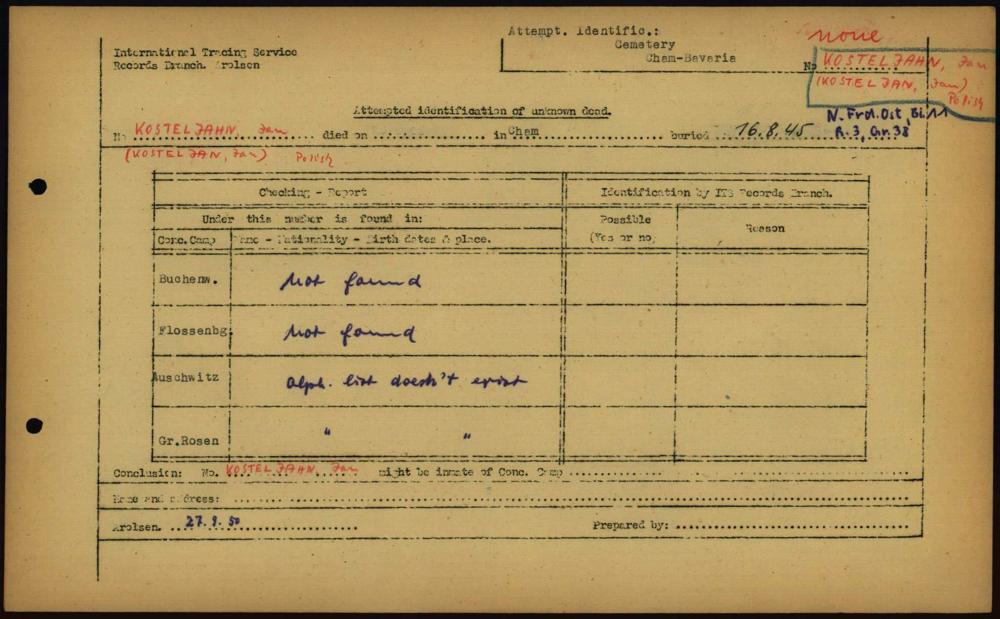 Attempt. Identific.:
Cemetery
Cham-Bavaria
none
International Tracing Service
Records Branch. Arolsen
No KOSTELJAHN, Jan
(KOSTELJAN, Jan)
Polish
Attempted identification of unknown dead.
N. Frdl. Ost, Bl. 11
R. 3, Gr. 38
No KOSTELJAHN, Jan died on ............ in Cham buried 16.8.45
(KOSTELJAN, Jan) Polish
Checking - Report
Identification by ITS Records Branch.
Under this number is found in:
Possible
(Yes or no)
Reason
Conc. Camp
Name - Nationality - Birth dates & place.
Buchenw. Not found
Flossenbg. Not found
Auschwitz alph. list doesn't exist
Gr.Rosen " "
Conclusion: No. KOSTELJAHN, Jan might be inmate of Conc. Camp ............
Name and address: ............
Arolsen. 27.9.50 ............ Prepared by: ............